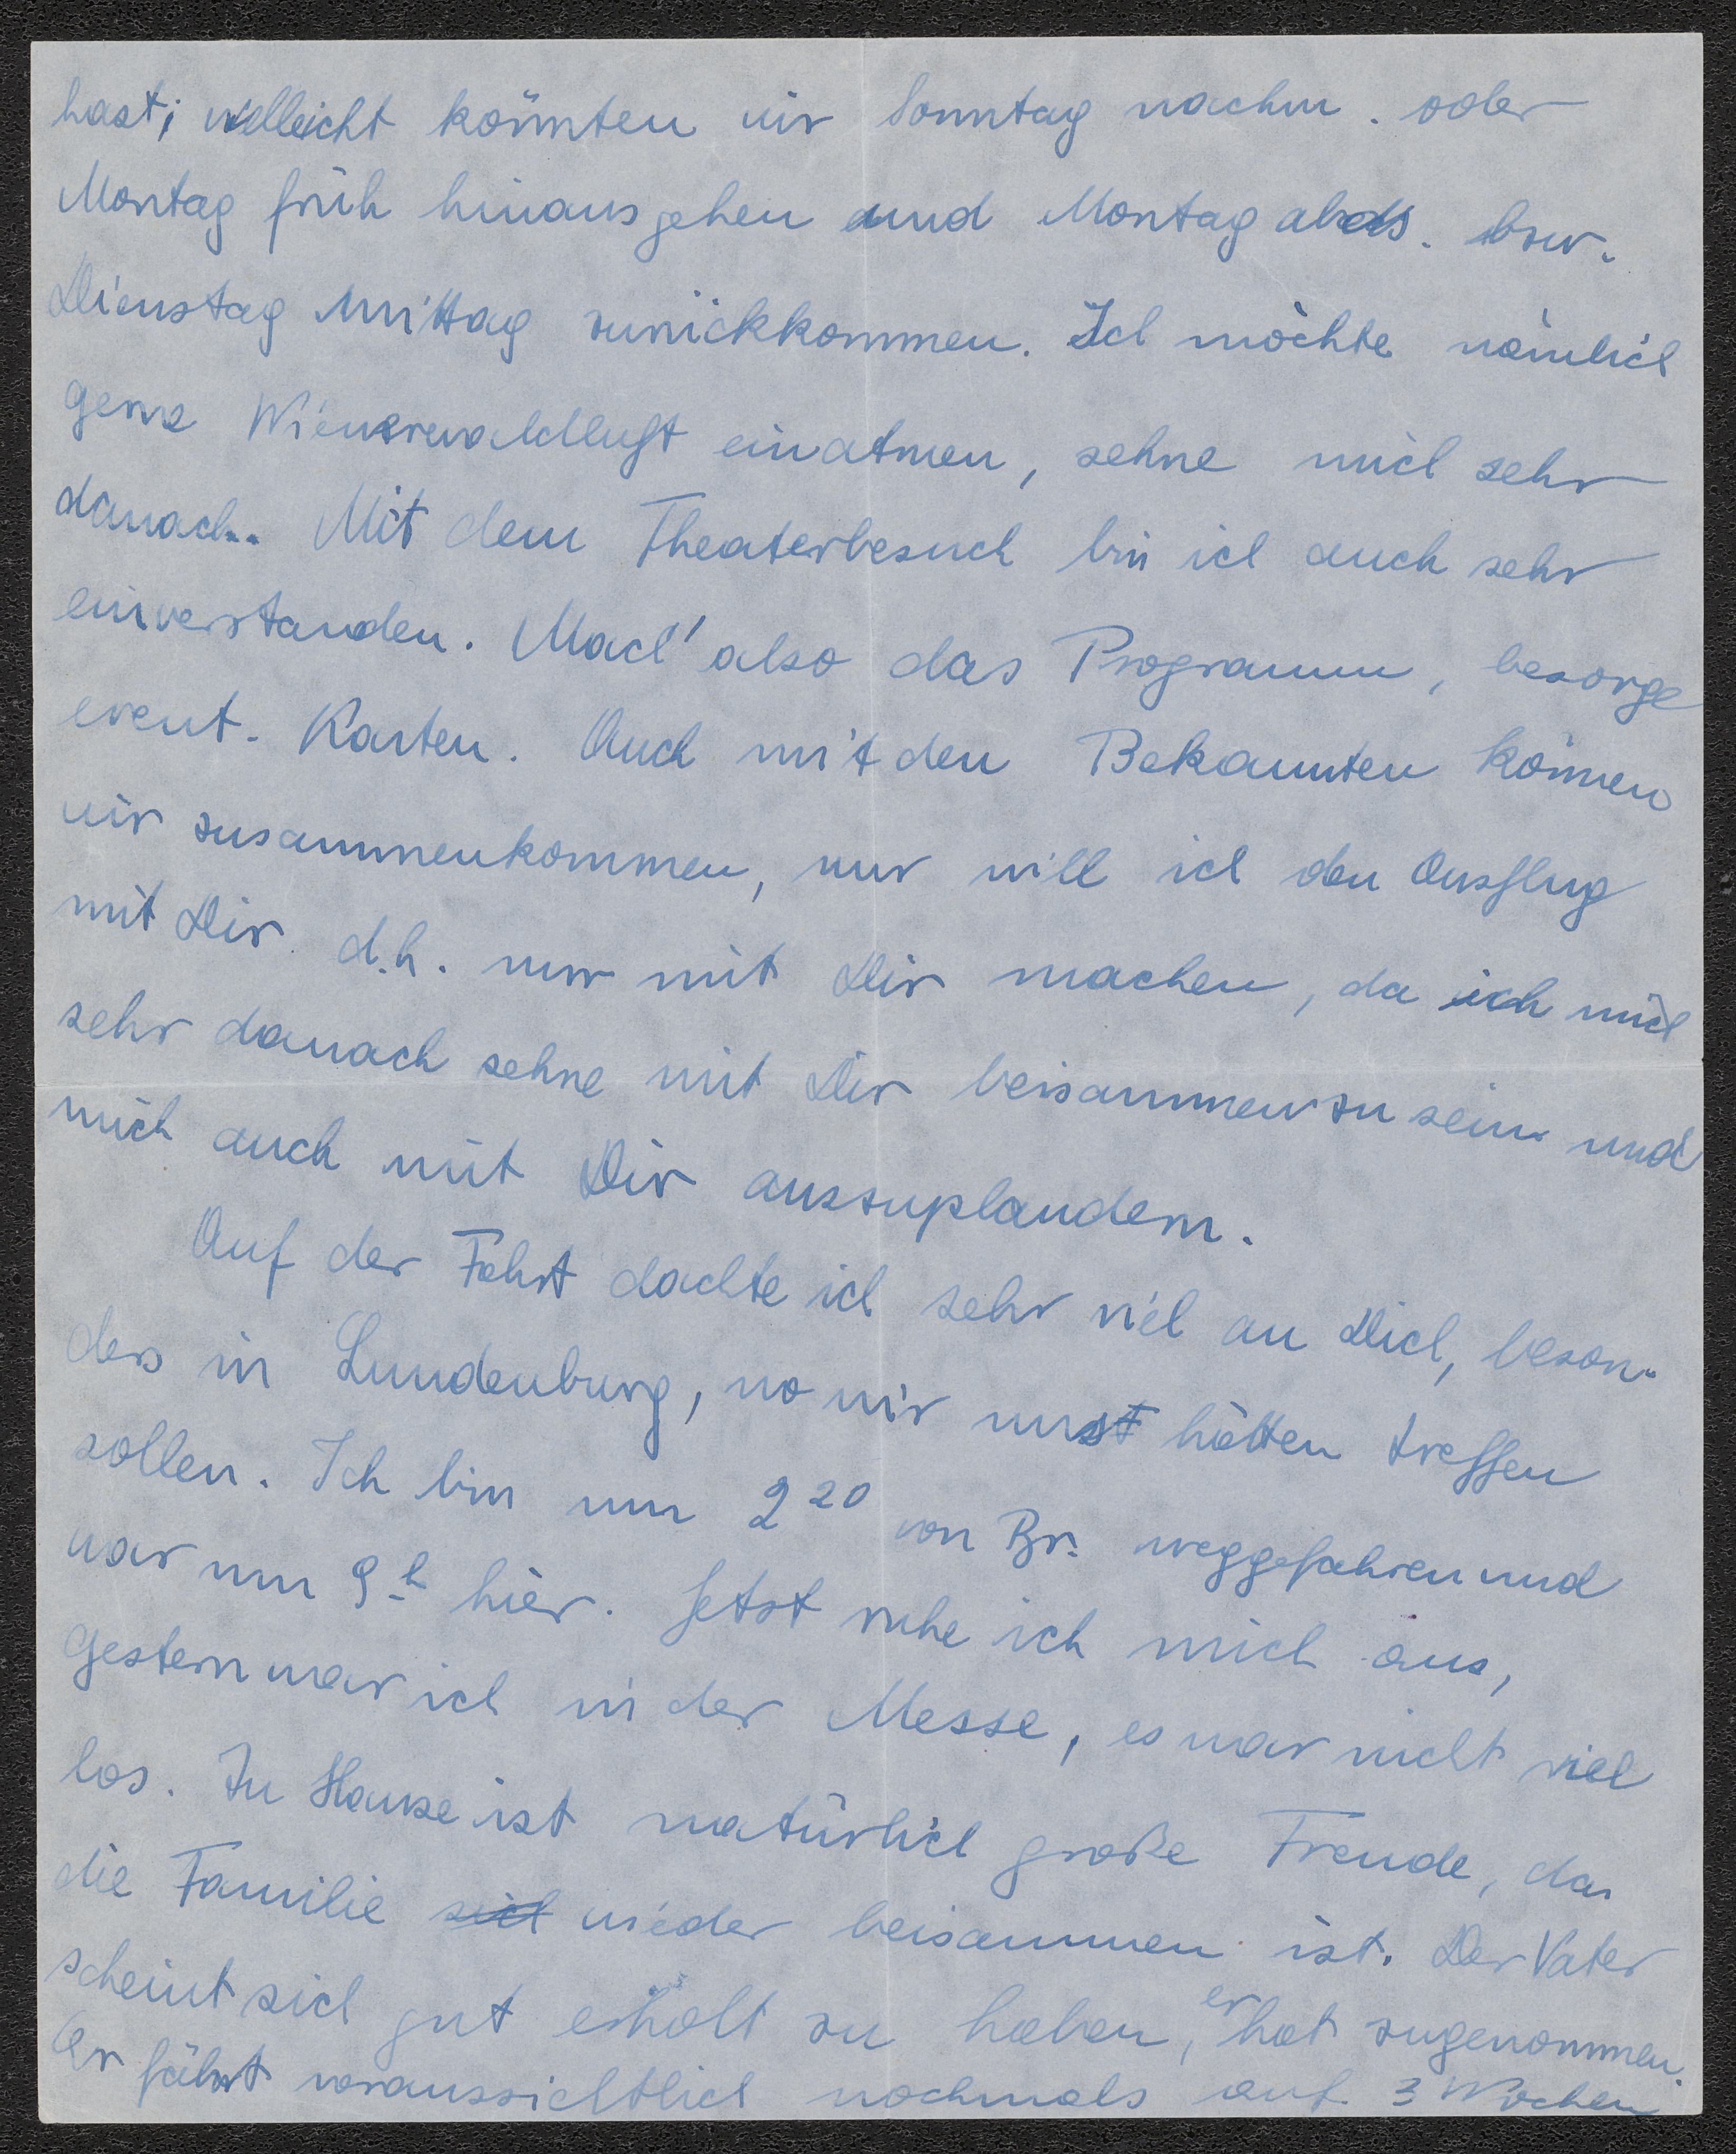 hast; vielleicht könnten wir Sonntag nachm. oder
Montag früh hinausgehen und Montag abds. bzw.
Dienstag Mittag zurückkommen. Ich möchte nämlich
gerne Wienerwaldluft einatmen, sehne mich sehr
danach. Mit dem Theaterbesuch bin ich auch sehr
einverstanden. Mach' also das Programm, besorge
event. Karten. Auch mit den Bekannten können
wir zusammenkommen, nur will ich den Ausflug
mit Dir d.h. nur mit Dir machen, da ich mich
sehr danach sehne mit Dir beisammen zu sein und
mich auch mit Dir auszuplaudern.
Auf der Fahrt dachte ich sehr viel an Dich, beson-
ders in Lundenburg, wo wir uns hätten treffen
sollen. Ich bin um 2 20 von Br. weggefahren und
war um 9h hier. Jetzt ruhe ich mich aus,
gestern war ich in der Messe, es war nicht viel
los. Zu Hause ist natürlich große Freude, da
die Familie sich wieder beisammen ist. Der Vater
scheint sich gut erholt zu haben, er hat zugenommen.
Er fährt voraussichtlich nochmals auf 3 Wochen